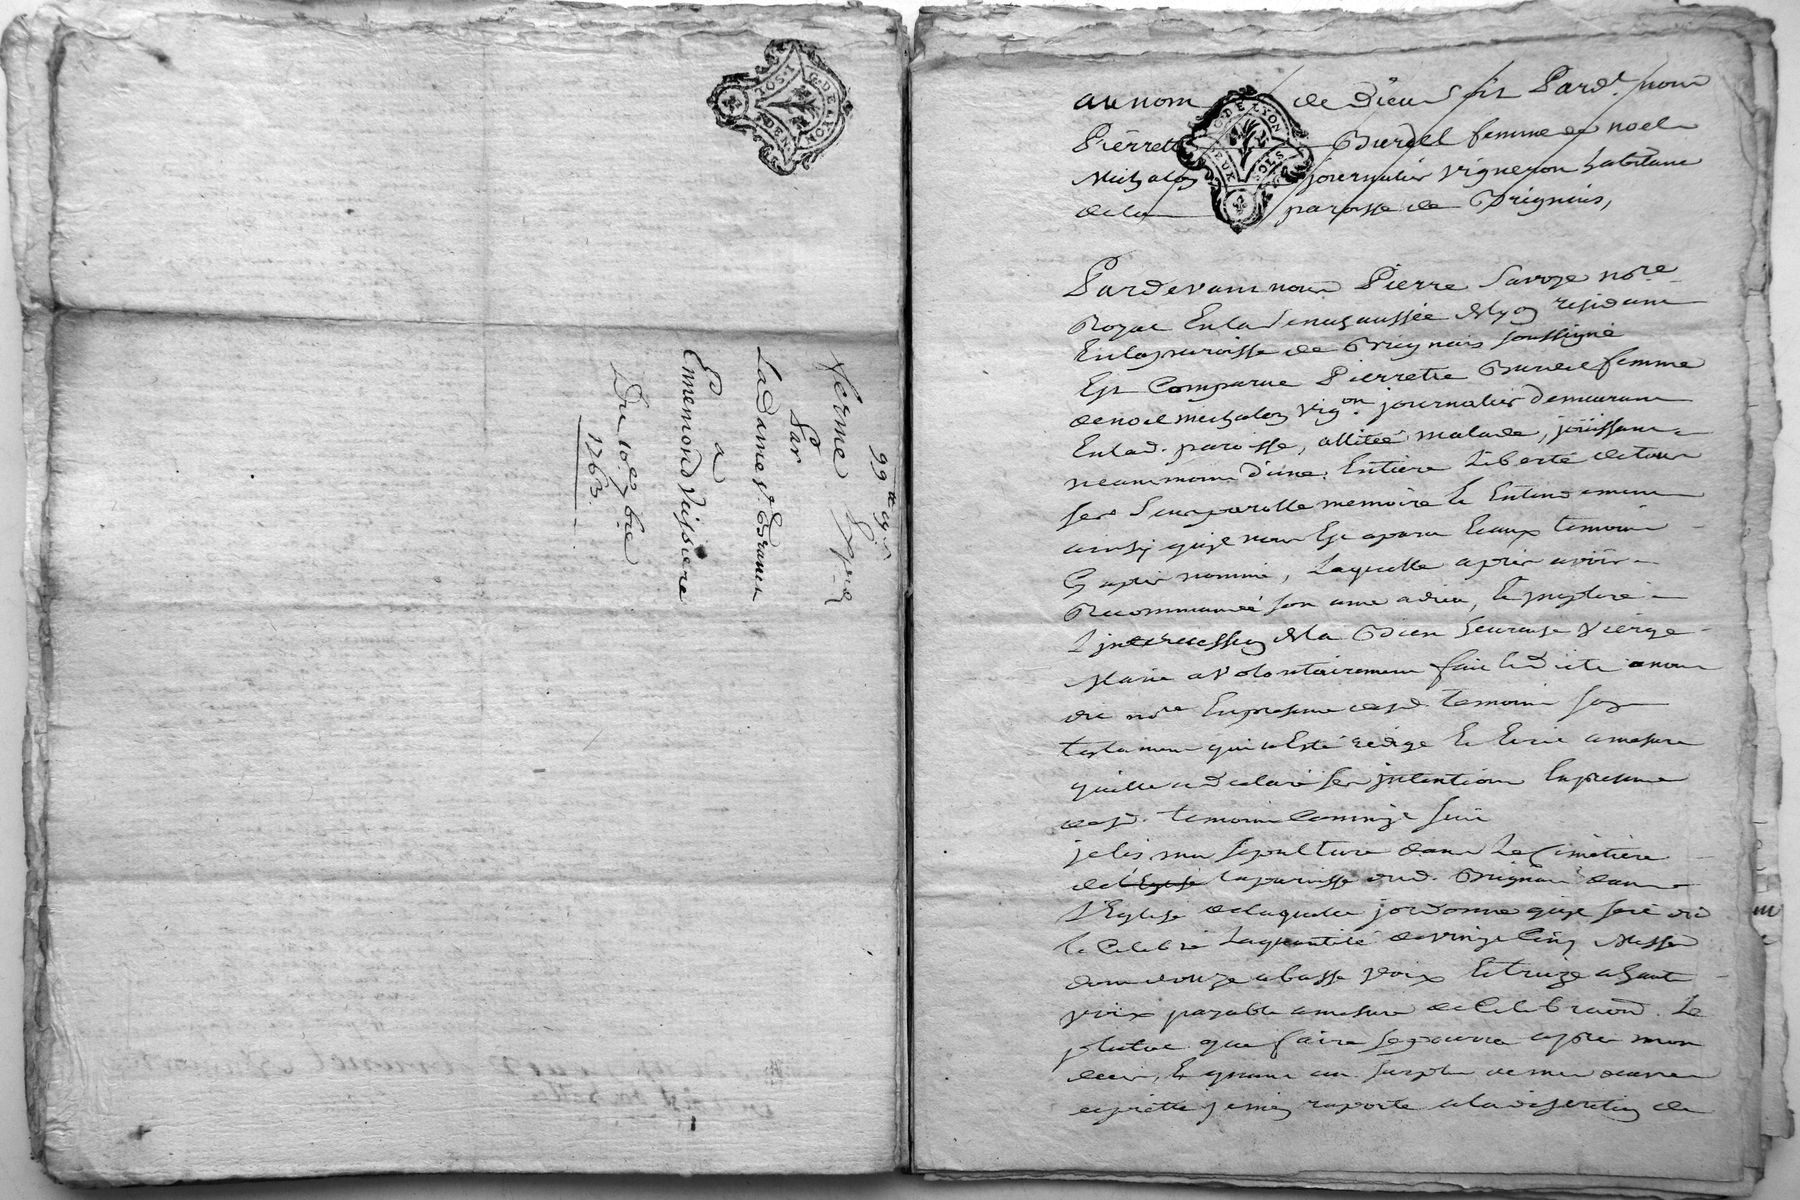 G. DE LYON
DEUX SOLS
99tt 19s
ferme
Par
La Dame
a
Ennemond Vissiere
Du 10e 7bre
1763.
G. DE LYON
DEUX SOLS
au nom de Dieu Pard. nous
Pierrette Burdel femme de noel
Michalon journalier vigneron habitant
de la paroisse de Brignais,
Pardevant nous Pierre Savoye nore
Royal En la Senechaussée de Lyon residant
En la paroisse de Brignais soussigné
Est Comparue Pierrette Burdel femme
de noel Michalon vigon journalier demeurant
En lad. paroisse, allitée malade, jouissant
neanmoins d'une Entiere liberté de tous
ses Sens parolle memoire Et Entendement
ainsy quil nous Est aparu Et aux temoins
Cy apres nommés, Laquelle apres avoir
Recommandé son ame a dieu, Et imploré
L'intercession de la Bien heureuse Vierge
Marie a volontairement fait Et dicté a nous
dit nore En presence desd. temoins son
testament qui a Esté redigé Et Ecrit a mesure
quelle a declaré ses intentions En presence
desd. temoins Comme sensuit
je elis ma sepulture dans Le Cimetiere
de l'Eglise la paroisse dud. Brignais dans
L'Eglise de laquelle jordonne quil soit dit
Et Celebré La quantité de vingt Cinq Messes
dont douze a basse voix Et treize a haute
voix payable a mesure de Celebraon. Le
plutot que faire se pourra apres mon
deces, Et quant au surplus de mes œuvres
pies je men raporte a la discretion de